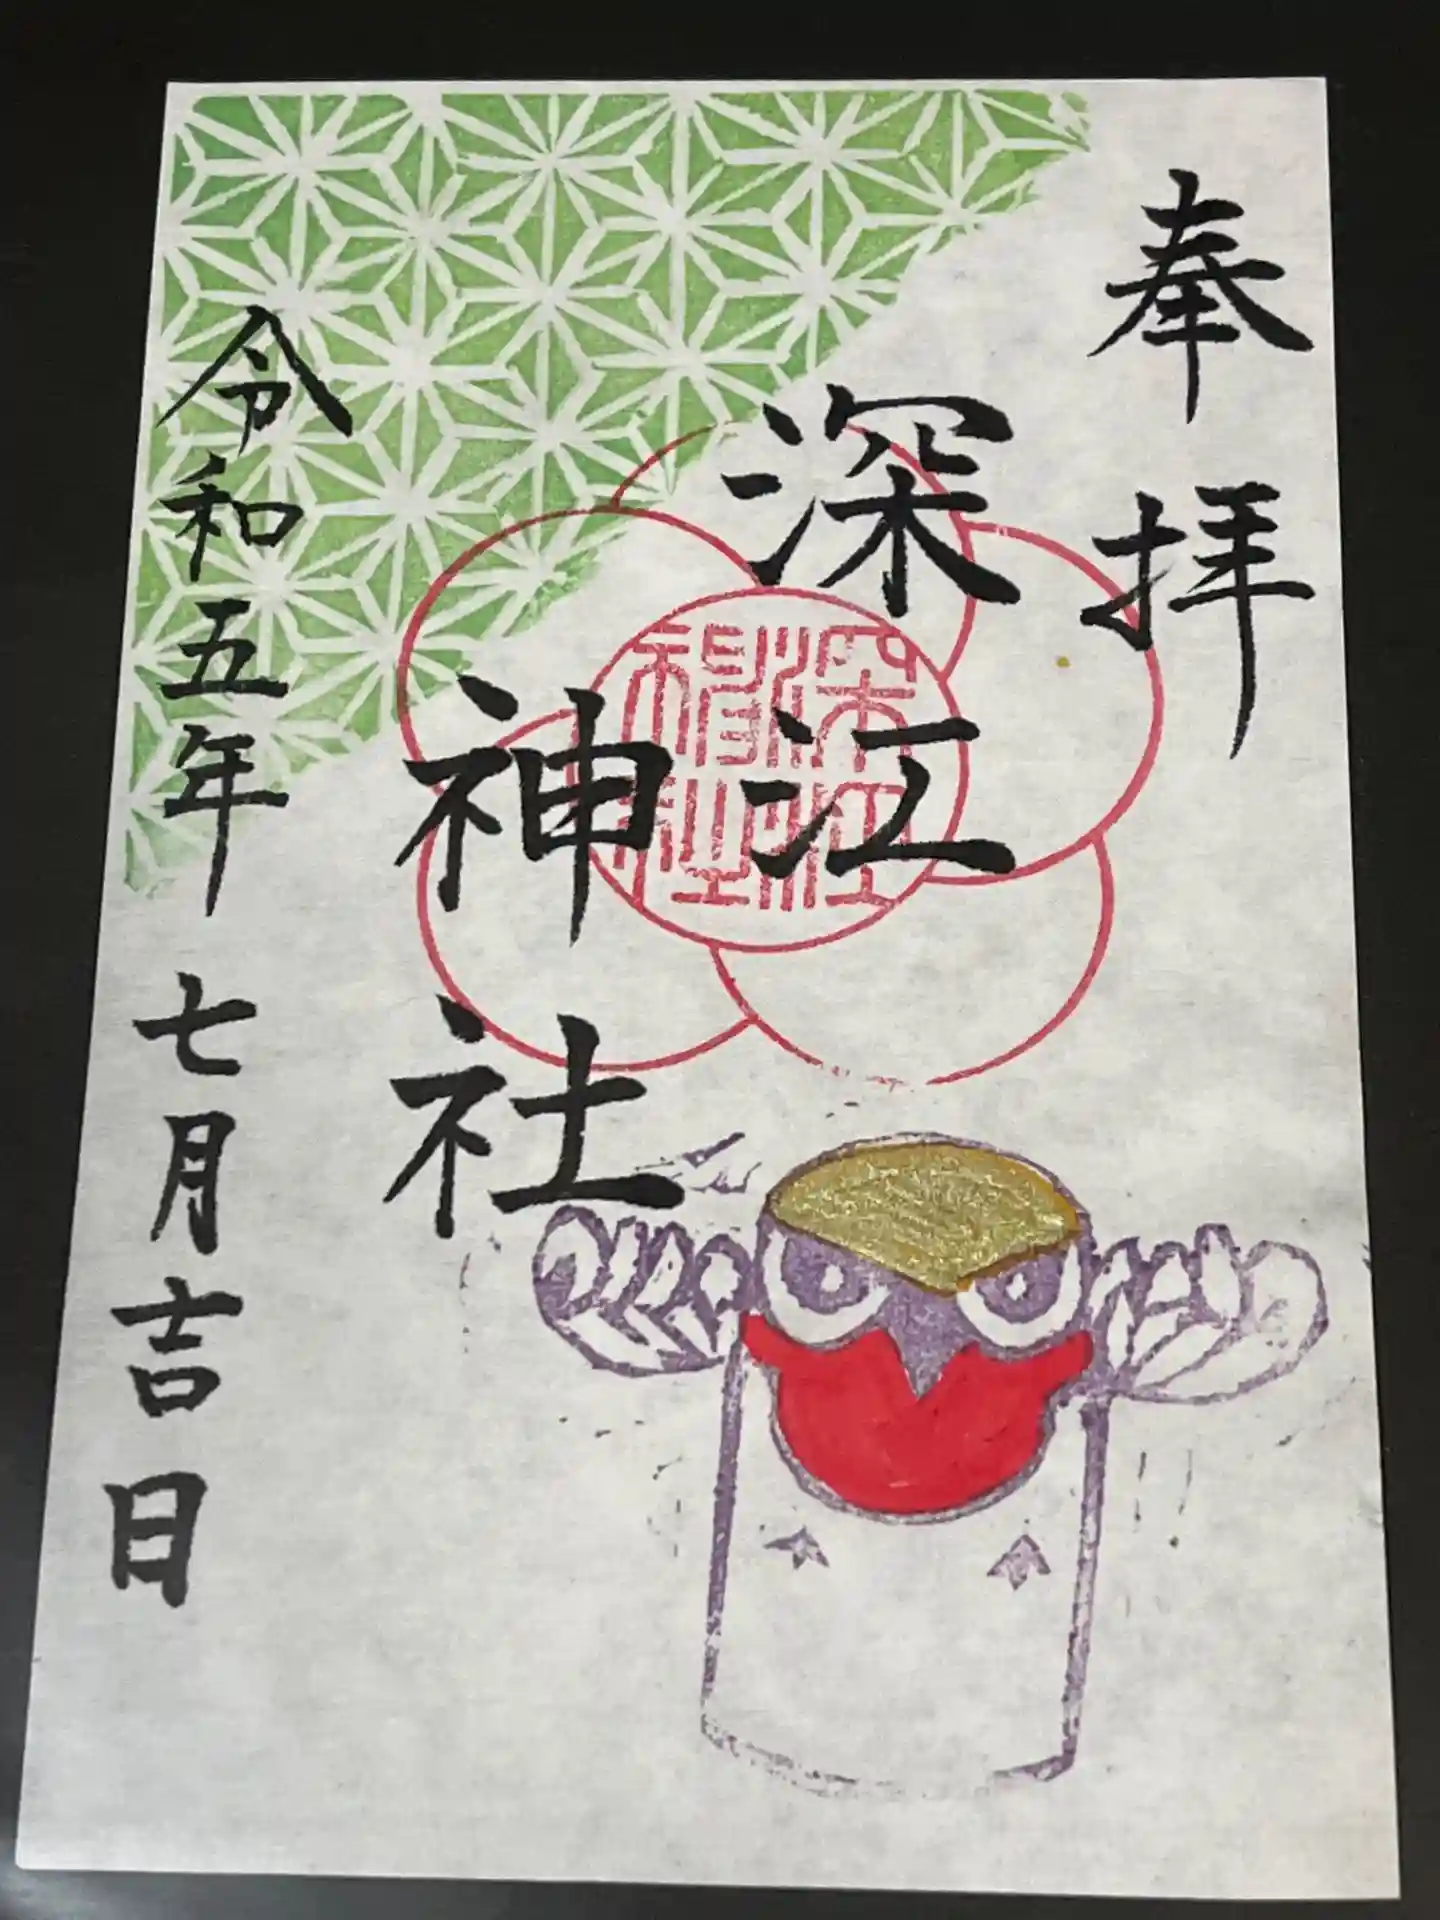 奉拝
深江
神社
深江
神社
令和五年七月吉日